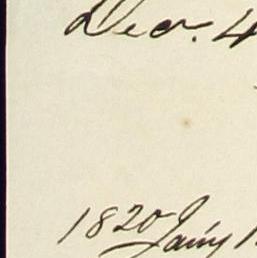 Dec. 4
1820 Jan'y 1